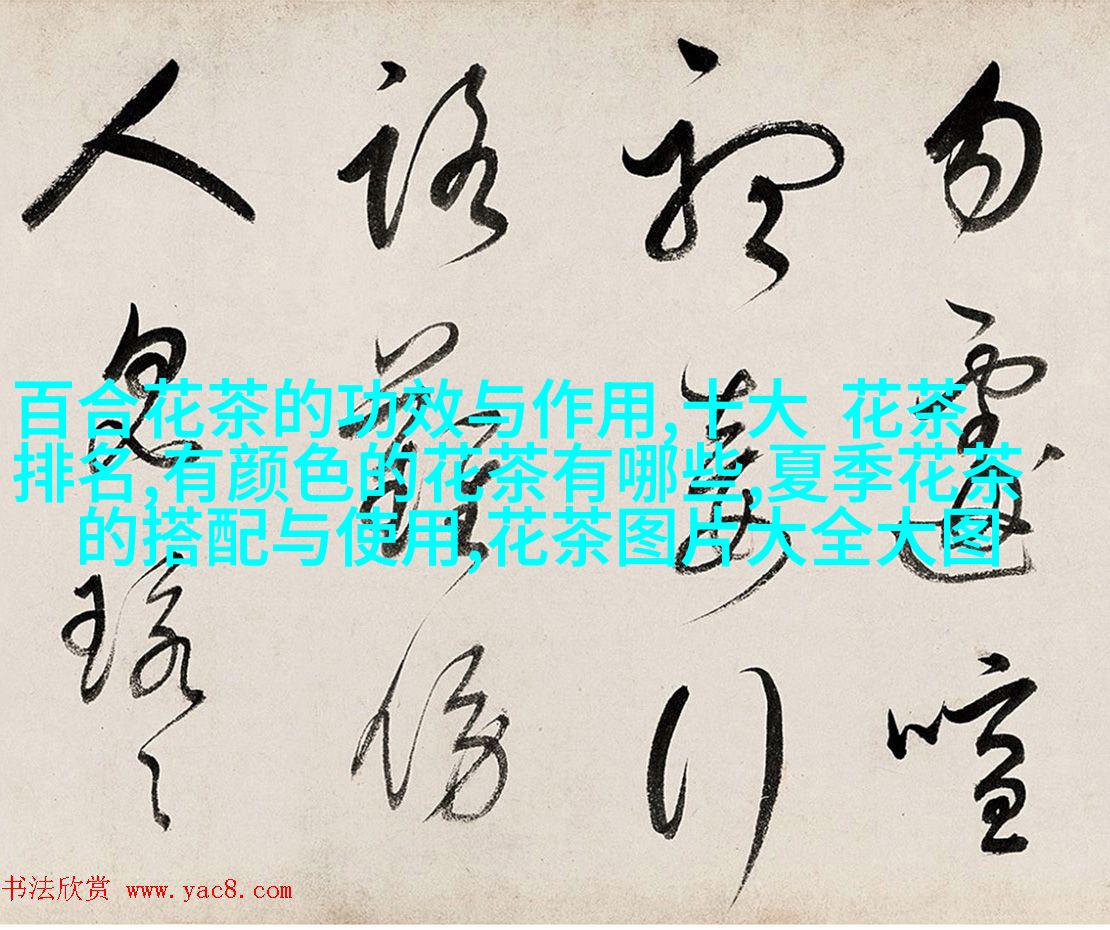 勿 喧
行
路 傍
人 息
百合花茶的功效与作用,十大 花茶
排名,有颜色的花茶有哪些,夏季花茶
的搭配与使用,花茶图片大全大图
书法欣赏 www.yac8.com